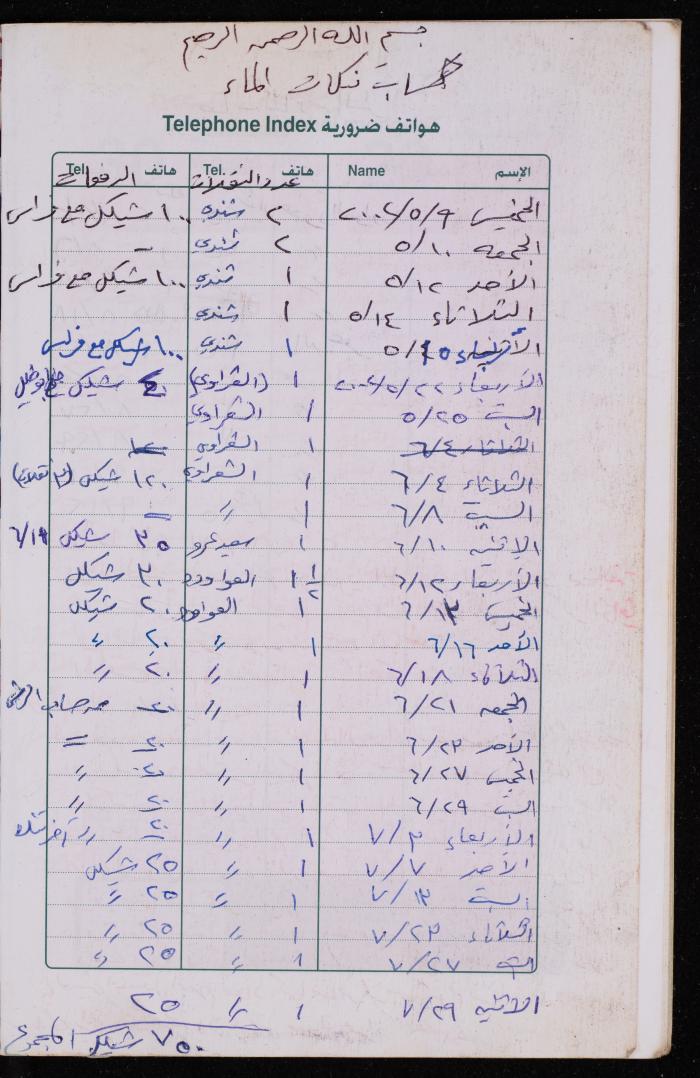 بسم الله الرحمن الرحيم
حساب تنكات الماء
هواتف ضرورية Telephone Index
الإسم Name هاتف Tel. عدد النقلات هاتف Tel. الرفعات
الخميس ٢٠٠٢/٥/٩ ٢ شندي ١٠٠ شيكل مع فراس
الجمعه ٥/١٠ ٢ شندي
الأحد ٥/١٢ ١ شندي ١٠٠ شيكل مع فراس
الثلاثاء ٥/١٤ ١ شندي
٥/١٥ ١ شندي ١٠٠ شيكل مع فراس
الأربعاء ٢٠٠٢/٥/٢٢ ١ (الشعراوي) شيكل
السبت ٥/٢٥ ١ الشعراوي
الثلاثاء ٦/٤ ١ الشعراوي
الثلاثاء ٦/٤ ١ الشعراوي ١٢٠ شيكل (٣ نقلات)
السبت ٦/٨ ١〃 =
الاثنين ٦/١٠ ١ سعيد عمرو ٣٥ شيكل ٦/١٩
الأربعاء ٦/١٢ ١ ١/٢ العواوده ٣٠ شيكل
الخميس ٦/١٣ ١ العواوده ٢٠ شيكل
الأحد ٦/١٦ ١ 〃 ٢٠ 〃
الثلاثاء ٦/١٨ ١ 〃 ٢٠ 〃
الجمعه ٦/٢١ ١ 〃 ٢٠
الأحد ٦/٢٣ ١ 〃 ٢٠ =
الخميس ٦/٢٧ ١ 〃 ٢٠ 〃
السبت ٦/٢٩ ١ 〃 ٢٠ 〃
الأربعاء ٧/٣ ١ 〃 ٢٠ 〃
الأحد ٧/٧ ١ 〃 ٢٥ شيكل
السبت ٧/١٣ ١ 〃 ٢٥ 〃
الثلاثاء ٧/٢٣ ١ 〃 ٢٥ 〃
السبت ٧/٢٧ ١ 〃 ٢٥ 〃
الاثنين ٧/٢٩ ١ 〃 ٢٥
٧٥٠ شيكل المجموع